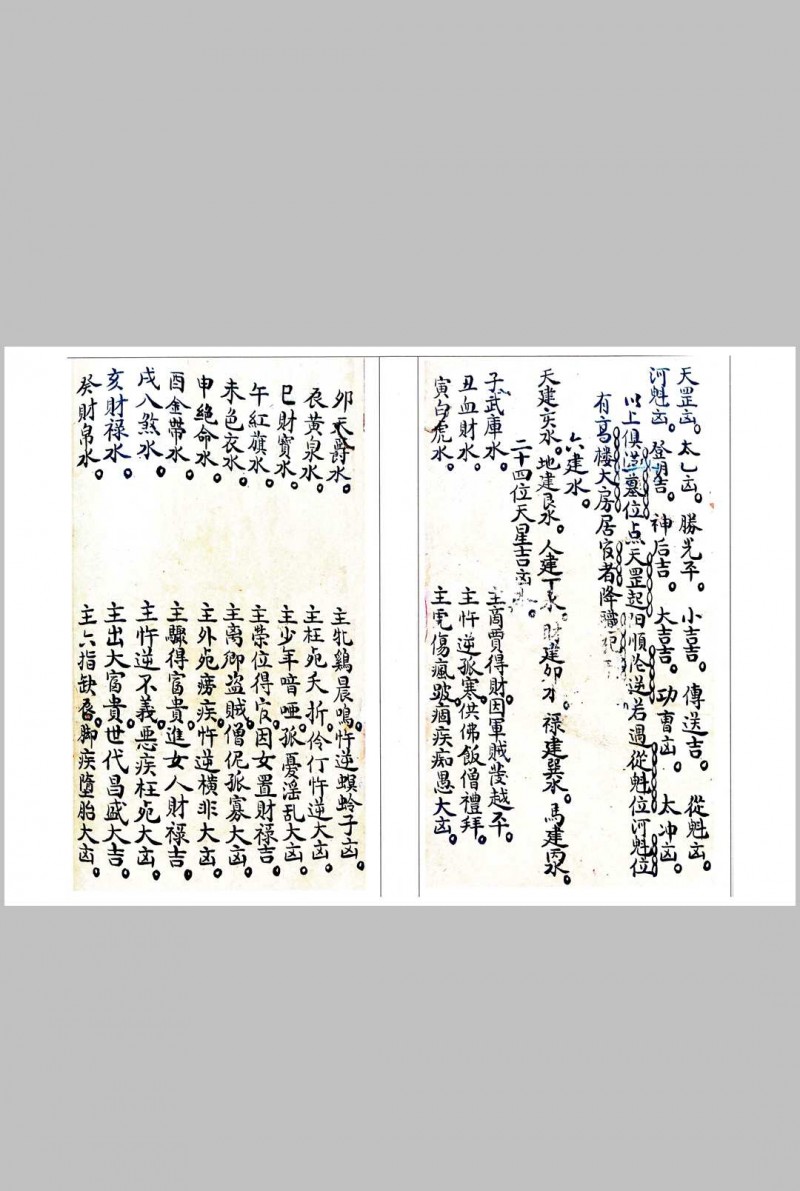 天罡凶。太乙凶。勝光平。小吉吉。傳送吉。從魁凶。
河魁凶。登明吉。神后吉。大吉吉。功曹凶。太冲凶。
以上俱
墓位点天罡起
順
逆若遇從魁位河魁位
有高楼大房居官者降職
六建水。
天建亥水。地建艮水。人建丁水。財建卯水。禄建巽水。馬建丙水。
二十四位天星吉凶
子武庫水。主商賈得財因軍賊發越平。
丑血財水。主忤逆孤寒供佛飯僧禮拜。
寅白虎水。主雹傷瘋跛痼疾痴愚大凶。
夘天爵水。主牝鷄晨鳴忤逆螟蛉子凶。
辰黄泉水。主枉死夭折伶仃忤逆大凶。
巳財寳水。主少年喑啞孤憂淫乱大凶。
午紅旗水。主榮位得官因女置財禄吉。
未色衣水。主离鄉盗賊僧伲孤寡大凶。
申絶命水。主外死痨疾忤逆横非大凶。
酉金帶水。主驟得富貴進女人財禄吉。
戌八煞水。主忤逆不義恶疾枉死大凶。
亥財禄水。主出大富貴世代昌盛大吉。
癸財帛水。主六指缺唇脚疾墮胎大凶。